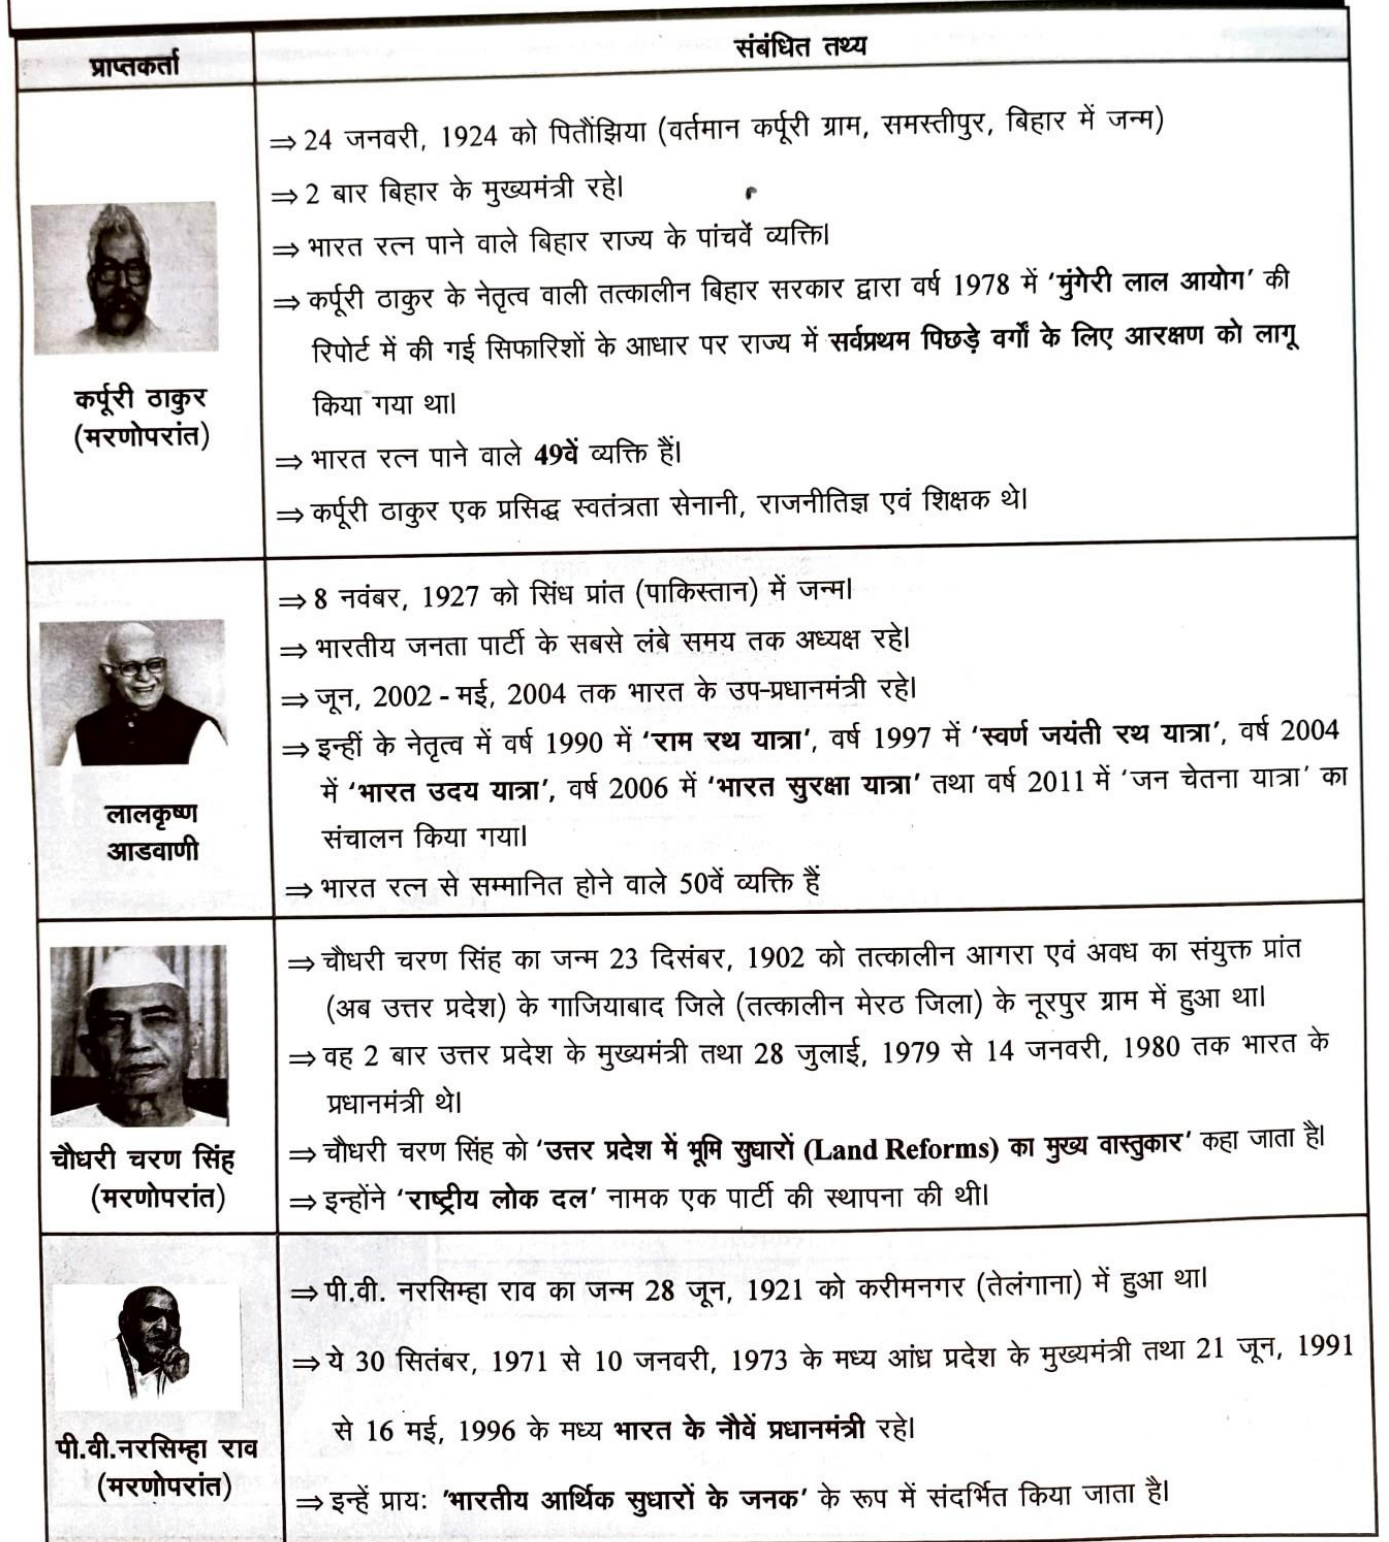 प्राप्तकर्ता
संबंधित तथ्य
कर्पूरी ठाकुर
(मरणोपरांत)
⇒ 24 जनवरी, 1924 को पितौंझिया (वर्तमान कर्पूरी ग्राम, समस्तीपुर, बिहार में जन्म)
⇒ 2 बार बिहार के मुख्यमंत्री रहे।
⇒ भारत रत्न पाने वाले बिहार राज्य के पांचवें व्यक्ति।
⇒ कर्पूरी ठाकुर के नेतृत्व वाली तत्कालीन बिहार सरकार द्वारा वर्ष 1978 में 'मुंगेरी लाल आयोग' की
रिपोर्ट में की गई सिफारिशों के आधार पर राज्य में सर्वप्रथम पिछड़े वर्गों के लिए आरक्षण को लागू
किया गया था।
⇒ भारत रत्न पाने वाले 49वें व्यक्ति हैं।
⇒ कर्पूरी ठाकुर एक प्रसिद्ध स्वतंत्रता सेनानी, राजनीतिज्ञ एवं शिक्षक थे।
लालकृष्ण
आडवाणी
⇒ 8 नवंबर, 1927 को सिंध प्रांत (पाकिस्तान) में जन्म।
⇒ भारतीय जनता पार्टी के सबसे लंबे समय तक अध्यक्ष रहे।
⇒ जून, 2002 - मई, 2004 तक भारत के उप-प्रधानमंत्री रहे।
⇒ इन्हीं के नेतृत्व में वर्ष 1990 में 'राम रथ यात्रा', वर्ष 1997 में 'स्वर्ण जयंती रथ यात्रा', वर्ष 2004
में 'भारत उदय यात्रा', वर्ष 2006 में 'भारत सुरक्षा यात्रा' तथा वर्ष 2011 में 'जन चेतना यात्रा' का
संचालन किया गया।
⇒ भारत रत्न से सम्मानित होने वाले 50वें व्यक्ति हैं
चौधरी चरण सिंह
(मरणोपरांत)
⇒ चौधरी चरण सिंह का जन्म 23 दिसंबर, 1902 को तत्कालीन आगरा एवं अवध का संयुक्त प्रांत
(अब उत्तर प्रदेश) के गाजियाबाद जिले (तत्कालीन मेरठ जिला) के नूरपुर ग्राम में हुआ था।
⇒ वह 2 बार उत्तर प्रदेश के मुख्यमंत्री तथा 28 जुलाई, 1979 से 14 जनवरी, 1980 तक भारत के
प्रधानमंत्री थे।
⇒ चौधरी चरण सिंह को 'उत्तर प्रदेश में भूमि सुधारों (Land Reforms) का मुख्य वास्तुकार' कहा जाता है।
⇒ इन्होंने 'राष्ट्रीय लोक दल' नामक एक पार्टी की स्थापना की थी।
पी.वी.नरसिम्हा राव
(मरणोपरांत)
⇒ पी.वी. नरसिम्हा राव का जन्म 28 जून, 1921 को करीमनगर (तेलंगाना) में हुआ था।
⇒ ये 30 सितंबर, 1971 से 10 जनवरी, 1973 के मध्य आंध्र प्रदेश के मुख्यमंत्री तथा 21 जून, 1991
से 16 मई, 1996 के मध्य भारत के नौवें प्रधानमंत्री रहे।
⇒ इन्हें प्राय: 'भारतीय आर्थिक सुधारों के जनक' के रूप में संदर्भित किया जाता है।